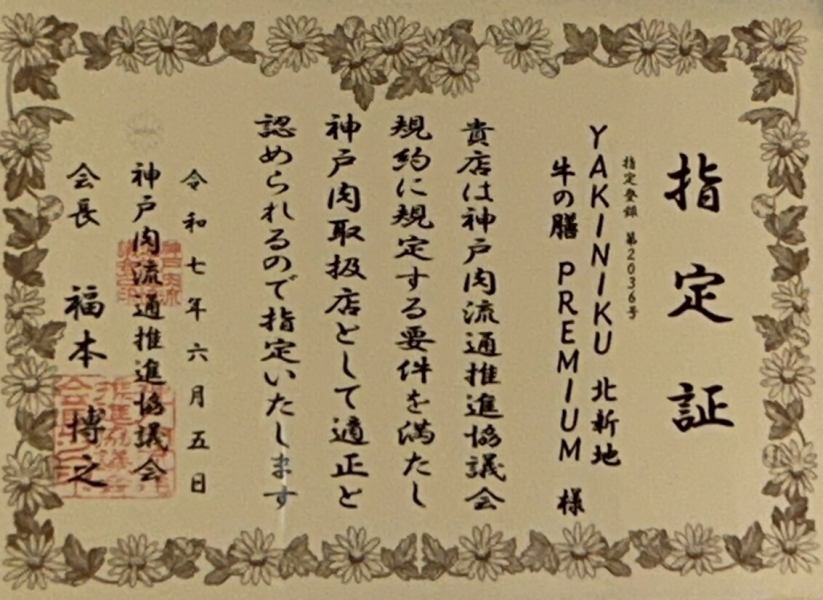 指定証
指定登録 第2036号
YAKINIKU 北新地
牛の膳 PREMIUM 様
貴店は神戸肉流通推進協議会
規約に規定する要件を満たし
神戸肉取扱店として適正と
認められるので指定いたします
令和七年六月五日
神戸肉流通推進協議会
会長 福本博之